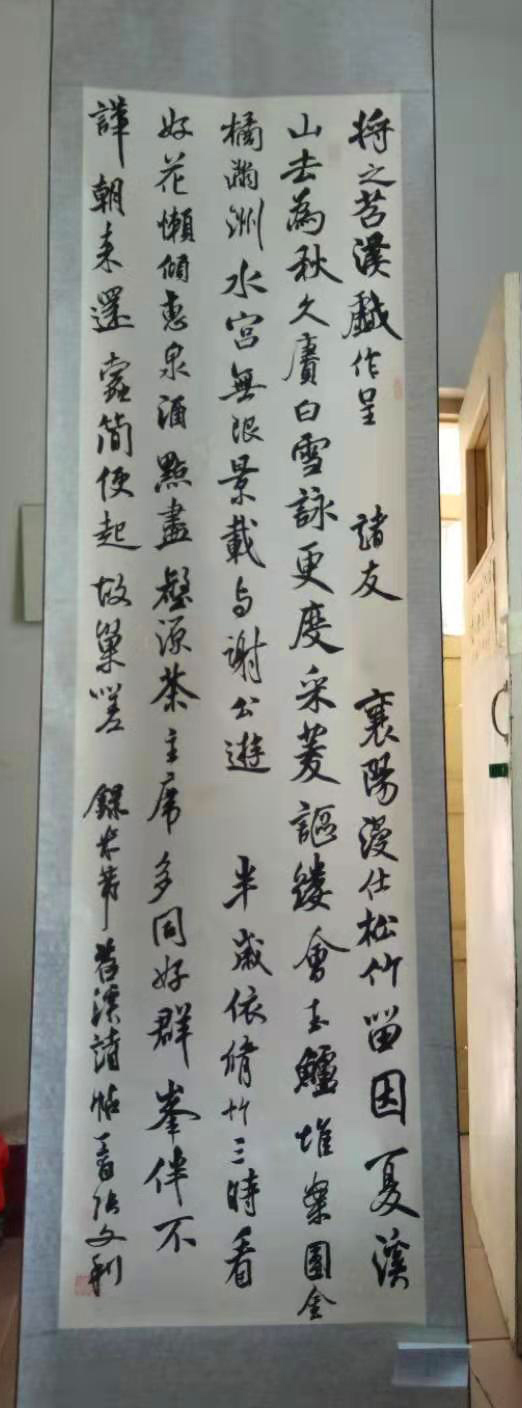 将之苕溪戲作呈 諸友 襄陽漫仕松竹留因夏溪
山去為秋久賡白雪詠更度采菱謳縷會玉鱸堆案團金
橘滿洲水宮無限景載与謝公遊 半歲依脩竹三時看
好花懶傾惠泉酒點盡壑源茶主席多同好群峯伴不
譁朝来還蠹簡便起故巢嗟 錄米芾苕溪詩帖 文利